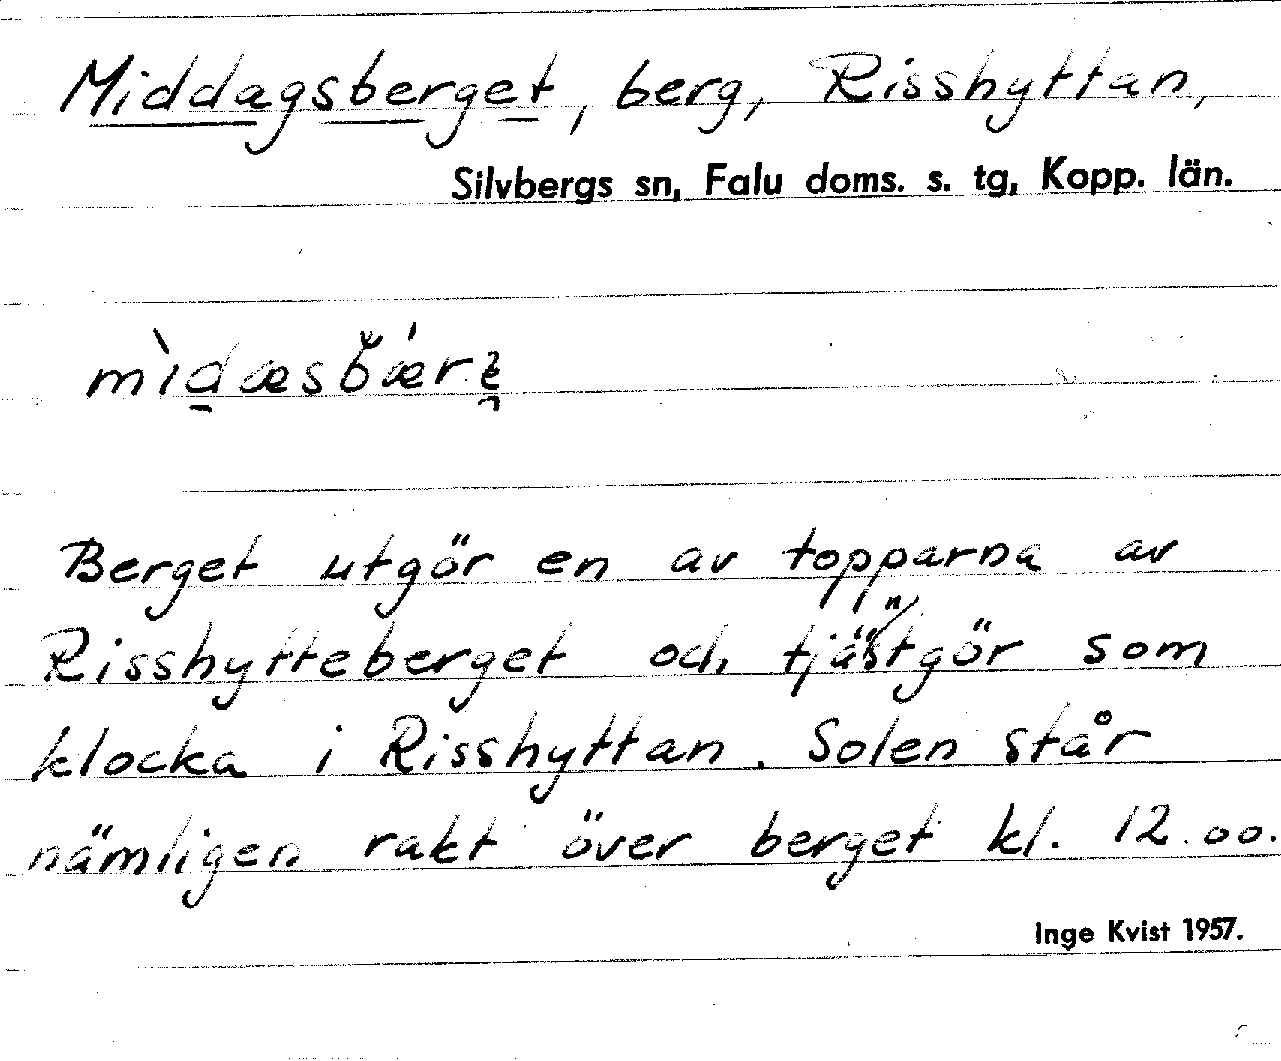 Middagsberget, berg, Risshyttan,
Silvbergs sn, Falu doms. s. tg, Kopp. län.
Berget utgör en av topparna av
Risshytteberget och tjänstgör som
klocka i Risshyttan. Solen står
nämligen rakt över berget kl. 12.00.
Inge Kvist 1957.